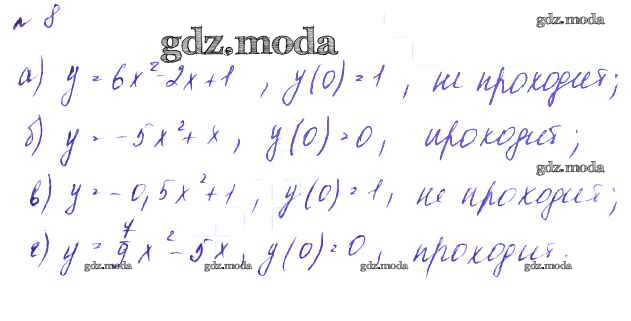 № 8
gdz.moda
gdz.moda
а) y = 6x² - 2x + 1, y(0) = 1, не проходит;
б) y = -5x² + x, y(0) = 0, проходит;
gdz.moda
в) y = -0,5x² + 1, y(0) = 1, не проходит;
г) y = 7/9 x² - 5x, y(0) = 0, проходит.
gdz.moda gdz.moda gdz.moda